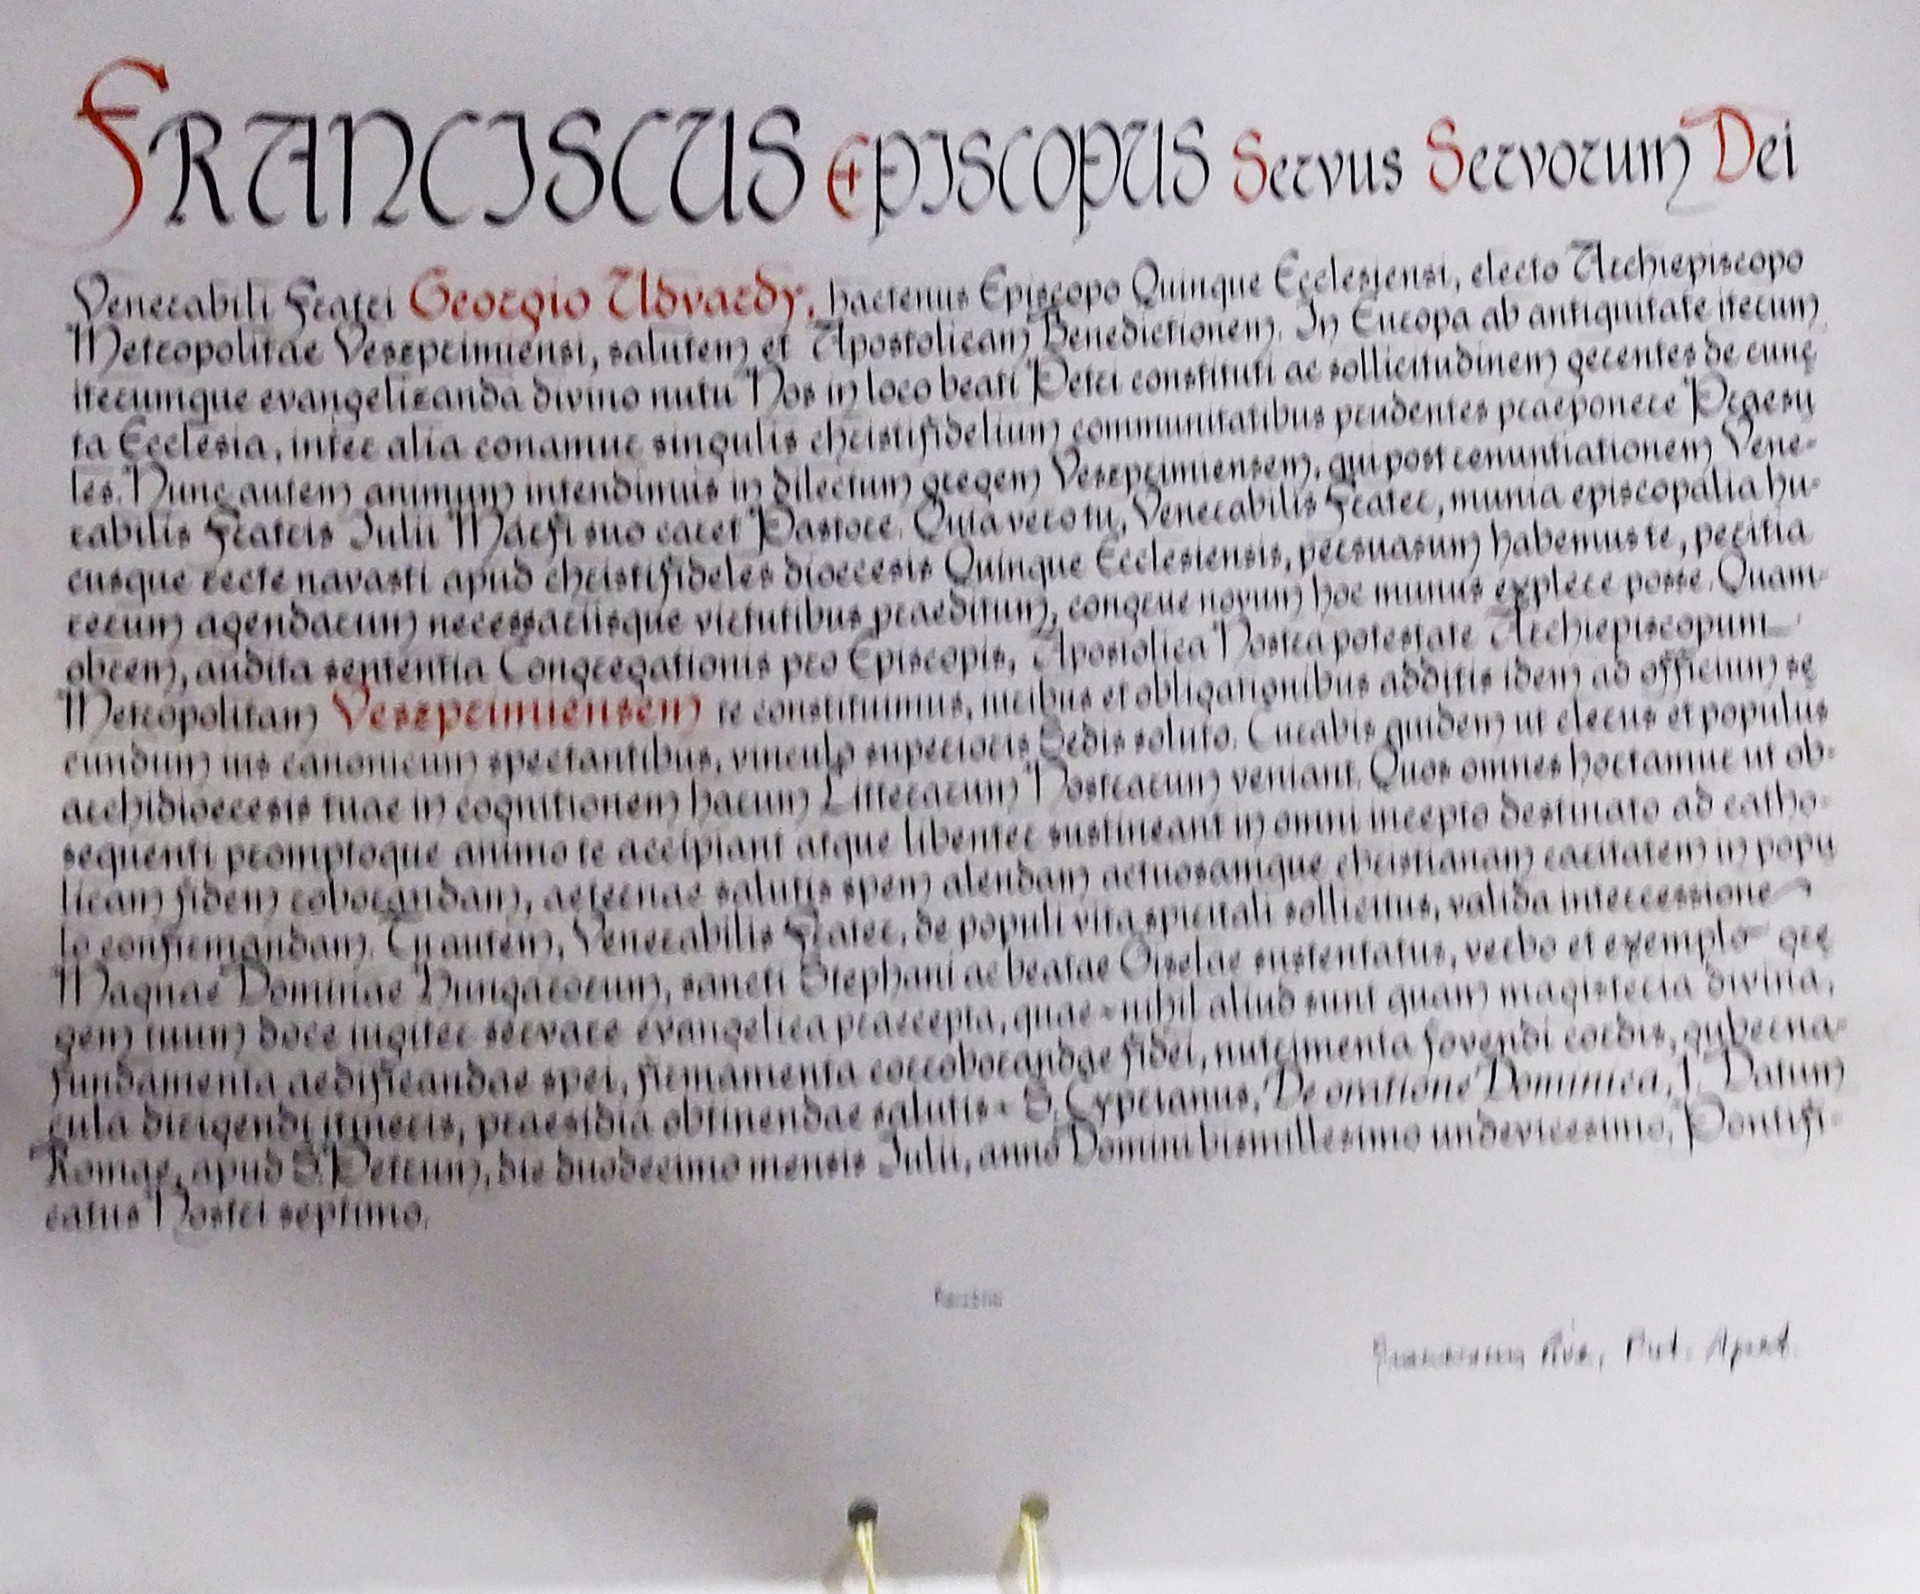 FRANCISCUS EPISCOPUS Servus Servorum Dei
Venerabili Fratri Georgio Udvardy, hactenus Episcopo Quinque Ecclesiensi, electo Archiepiscopo
Metropolitae Veszprimiensi, salutem et Apostolicam Benedictionem. In Europa ab antiquitate iterum
iterumque evangelizanda divino nutu Nos in loco beati Petri constituti ac sollicitudinem gerentes de cunc
ta Ecclesia, inter alia conamur singulis christifidelium communitatibus prudentes praeponere Praesu
les. Nunc autem animum intendimus in dilectum gregem Veszprimiensem, qui post renuntiationem Vene-
rabilis Fratris Iulii Márfi suo caret Pastore. Quia vero tu, Venerabilis Frater, munia episcopalia hu-
cusque recte navasti apud christifideles dioecesis Quinque Ecclesiensis, persuasum habemus te, peritia
rerum agendarum necessariisque virtutibus praeditum, congrue novum hoc munus explere posse. Quam-
obrem, audita sententia Congregationis pro Episcopis, Apostolica Nostra potestate Archiepiscopum
Metropolitam Veszprimiensem te constituimus, iuribus et obligationibus additis idem ad officium se
cundum ius canonicum spectantibus, vinculo superioris Sedis soluto. Curabis quidem ut clerus et populus
archidioecesis tuae in cognitionem harum Litterarum Nostrarum veniant. Quos omnes hortamur ut ob-
sequenti promptoque animo te accipiant atque libenter sustineant in omni incepto destinato ad catho-
licam fidem roborandam, aeternae salutis spem alendam actuosamque christianam caritatem in popu
lo confirmandam. Tu autem, Venerabilis Frater, de populi vita spiritali sollicitus, valida intercessione
Magnae Dominae Hungarorum, sancti Stephani ac beatae Giselae sustentatus, verbo et exemplo gre
gem tuum doce iugiter servare evangelica praecepta, quae «nihil aliud sunt quam magisteria divina,
fundamenta aedificandae spei, firmamenta corroborandae fidei, nutrimenta fovendi cordis, guberna-
cula dirigendi itineris, praesidia obtinendae salutis» S. Cyprianus, De oratione Dominica, 1. Datum
Romae, apud S. Petrum, die duodecimo mensis Iulii, anno Domini bismillesimo undevicesimo, Pontifi-
catus Nostri septimo.